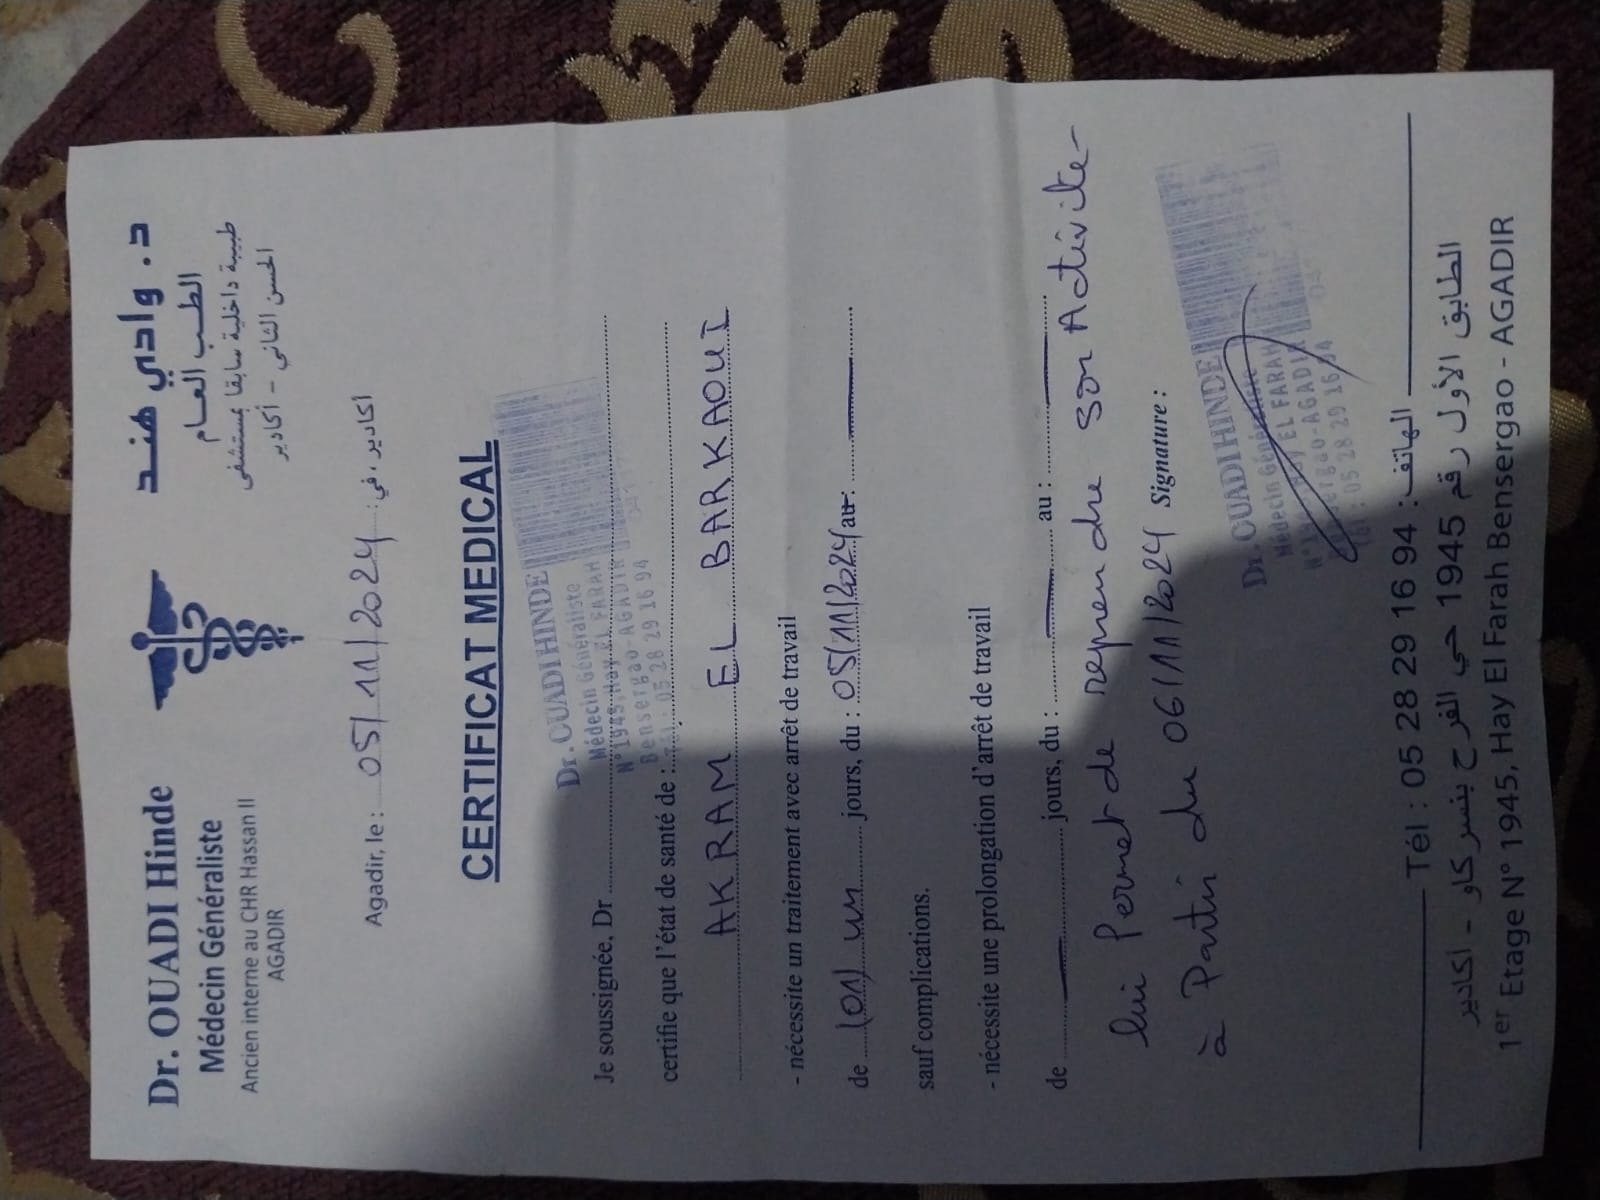 Dr. OUADI Hinde
Médecin Généraliste
Ancien interne au CHR Hassan II
AGADIR
د. وادي هند
الطب العام
طبيبة داخلية سابقا بمستشفى
الحسن الثاني - أكادير
Agadir, le : 05/11/2024 اكادير، في:
CERTIFICAT MEDICAL
Dr. OUADI HINDE
Médecin Généraliste
N°1945, Hay EL FARAH
Bensergao-AGADIR
Tél : 05 28 29 16 94
Je soussignée, Dr
certifie que l'état de santé de :
AKRAM EL BARKAOUI
- nécessite un traitement avec arrêt de travail
de (01) un jours, du : 05/11/2024 au :
sauf complications.
- nécessite une prolongation d'arrêt de travail
de jours, du : au :
lui Permet de reprendre son Activité
à Partir du 06/11/2024 Signature :
Dr. OUADI HINDE
Médecin Généraliste
Hay EL FARAH
AGADIR
Tél : 05 28 29 16 94
Tél : 05 28 29 16 94 : الهاتف
الطابق الأول رقم 1945 حي الفرح بنسركاو - اكادير
1er Etage N° 1945, Hay El Farah Bensergao - AGADIR